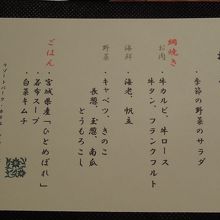 ・季節の野菜のサラダ
網焼き
お肉
・牛カルビ、牛ロース
牛タン、フランクフルト
海鮮
・海老、帆立
野菜
・キャベツ、きのこ
長葱、玉葱、南瓜
とうもろこし
ごはん
・宮城県産「ひとめぼれ」
・若布スープ
・白菜キムチ